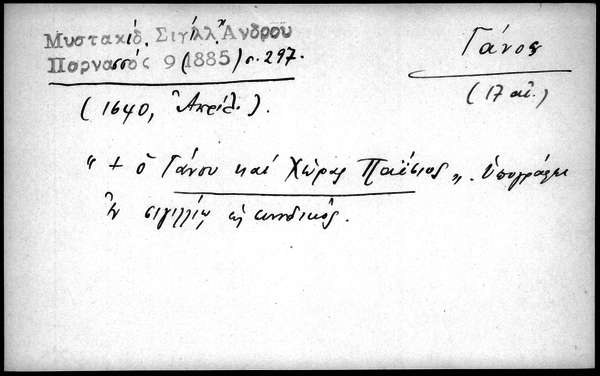 Μυστακίδ. Σιγίλλ. Ἄνδρου
Παρνασσός 9 (1885) σ. 297.
Γάνος
(17 αἰ.)
(1640, Ἀπρίλ.).
" + ὁ Γάνου καί Χώρας Παΐσιος „. Ὑπογράφει
ἐν σιγιλλίῳ ὡς συνοδικός.